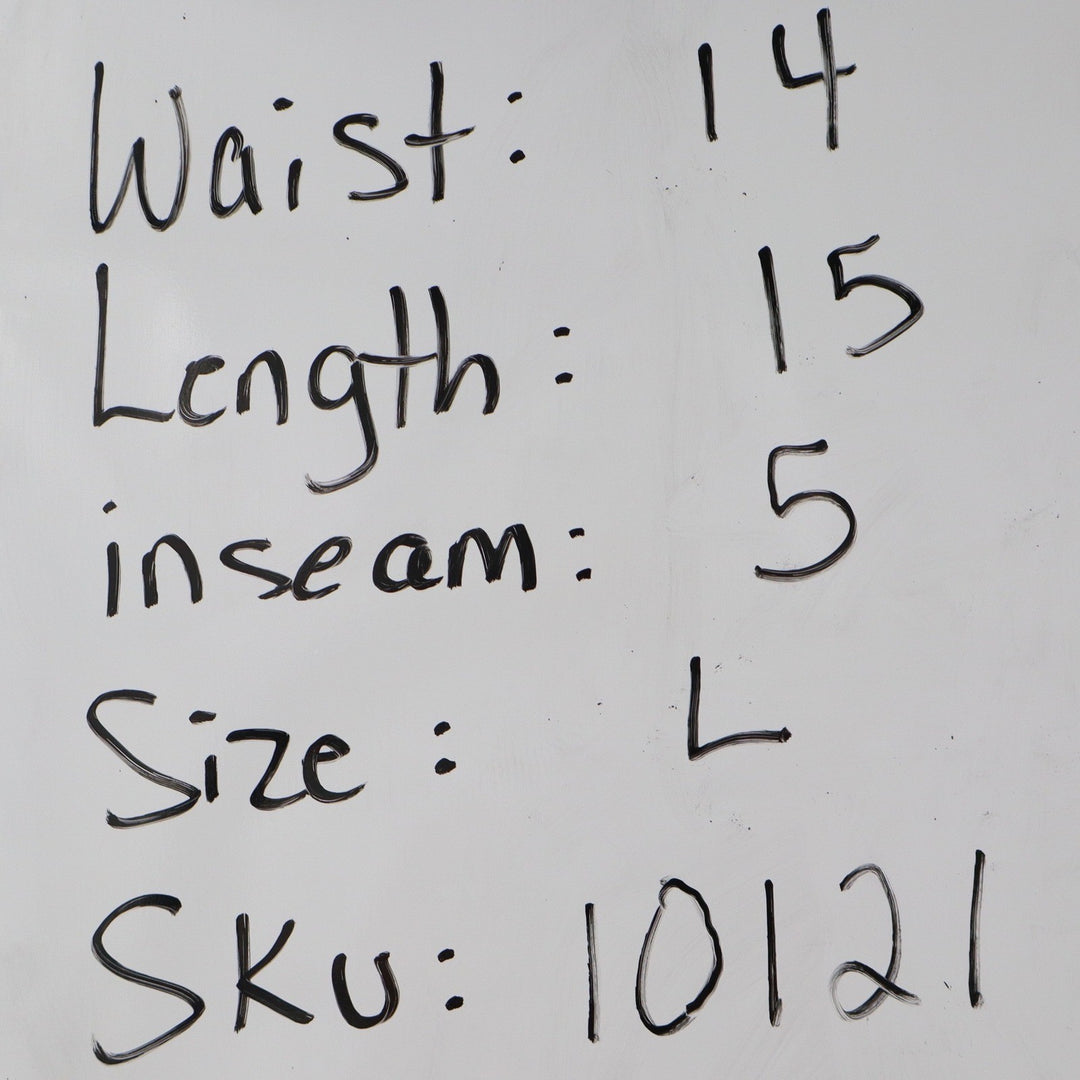 Waist: 14
Length: 15
inseam: 5
Size: L
SKU: 10121